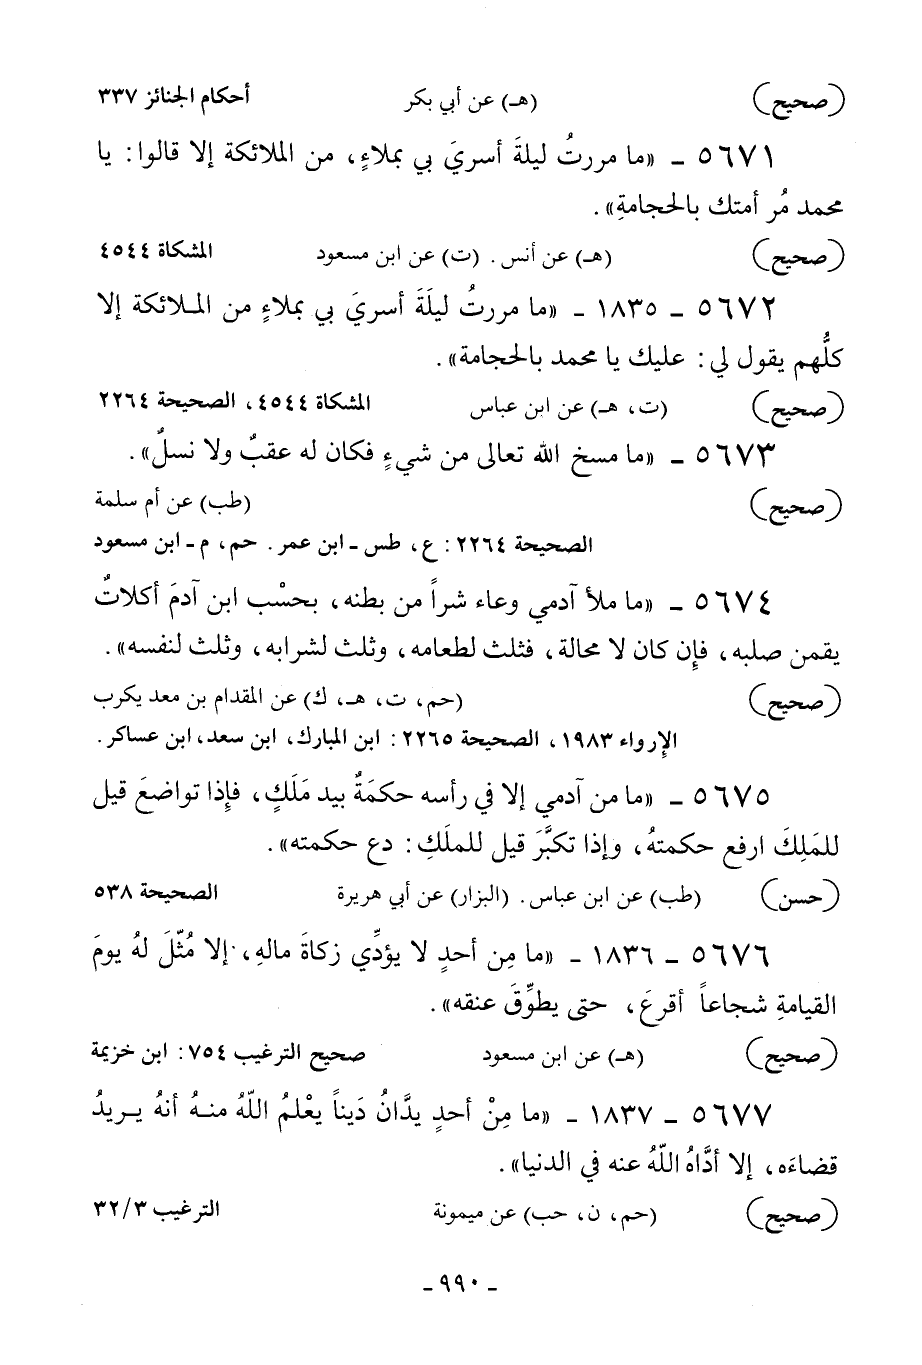 (صحيح) (هـ) عن أبي بكر أحكام الجنائز ٣٣٧
٥٦٧١ ـ «ما مررتُ ليلةَ أسريَ بي بملاءٍ، من الملائكة إلا قالوا: يا
محمد مُر أمتك بالحجامةِ».
(صحيح) (هـ) عن أنس. (ت) عن ابن مسعود المشكاة ٤٥٤٤
٥٦٧٢ ـ ١٨٣٥ ـ «ما مررتُ ليلَةَ أسريَ بي بملاءٍ من الملائكة إلا
كلُّهم يقول لي: عليك يا محمد بالحجامة».
(صحيح) (ت، هـ) عن ابن عباس المشكاة ٤٥٤٤، الصحيحة ٢٢٦٤
٥٦٧٣ ـ «ما مسخ الله تعالى من شيءٍ فكان له عقبٌ ولا نسلٌ».
(صحيح) (طب) عن أم سلمة
الصحيحة ٢٢٦٤: ع، طس ـ ابن عمر. حم، م ـ ابن مسعود
٥٦٧٤ ـ «ما ملأ آدمي وعاء شراً من بطنه، بحسْب ابن آدمَ أكلاتٌ
يقمن صلبه، فإن كان لا محالة، فثلث لطعامه، وثلث لشرابه، وثلث لنفسه».
(صحيح) (حم، ت، هـ، ك) عن المقدام بن معد يكرب
الإرواء ١٩٨٣، الصحيحة ٢٢٦٥: ابن المبارك، ابن سعد، ابن عساكر.
٥٦٧٥ ـ «ما من آدمي إلا في رأسه حكمَةٌ بيد مَلَكٍ، فإذا تواضعَ قيل
للمَلِكَ ارفع حكمتهُ، وإذا تكبَّرَ قيل للملَكِ: دع حكمته».
(حسن) (طب) عن ابن عباس. (البزار) عن أبي هريرة الصحيحة ٥٣٨
٥٦٧٦ ـ ١٨٣٦ ـ «ما مِن أحدٍ لا يؤدِّي زكاةَ مالهِ، إلا مُثّلَ لهُ يومَ
القيامةِ شجاعاً أقرعَ، حتى يطوِّقَ عنقه».
(صحيح) (هـ) عن ابن مسعود صحيح الترغيب ٧٥٤: ابن خزيمة
٥٦٧٧ ـ ١٨٣٧ ـ «ما مِنْ أحدٍ يدَّانُ دَيناً يعْلمُ اللّهُ منهُ أنهُ يريدُ
قضاءَه، إلا أدَّاهُ اللّهُ عنه في الدنيا».
(صحيح) (حم، ن، حب) عن ميمونة الترغيب ٣/٣٢
ـ ٩٩٠ ـ